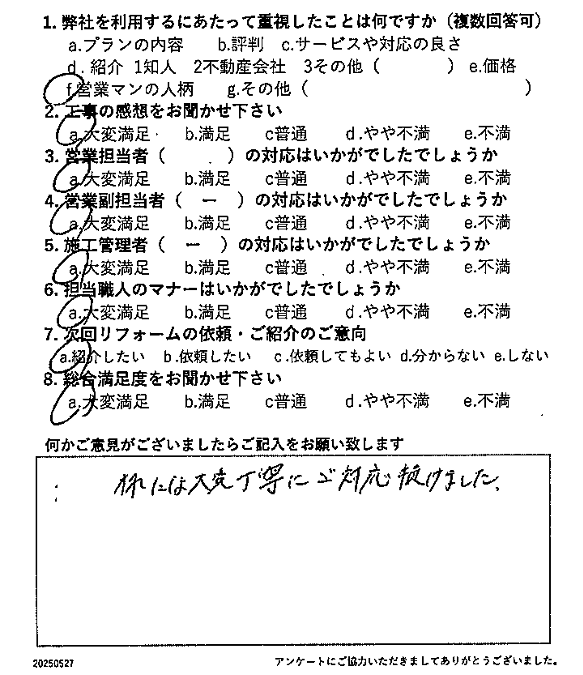 1. 弊社を利用するにあたって重視したことは何ですか（複数回答可）
a.プランの内容 b.評判 c.サービスや対応の良さ
d.紹介 1知人 2不動産会社 3その他（ ） e.価格
f.営業マンの人柄 g.その他（ ）
2. 工事の感想をお聞かせ下さい
a.大変満足 b.満足 c普通 d.やや不満 e.不満
3. 営業担当者（ ）の対応はいかがでしたでしょうか
a.大変満足 b.満足 c普通 d.やや不満 e.不満
4. 営業副担当者（ ー ）の対応はいかがでしたでしょうか
a.大変満足 b.満足 c普通 d.やや不満 e.不満
5. 施工管理者（ ー ）の対応はいかがでしたでしょうか
a.大変満足 b.満足 c普通 d.やや不満 e.不満
6. 担当職人のマナーはいかがでしたでしょうか
a.大変満足 b.満足 c普通 d.やや不満 e.不満
7. 次回リフォームの依頼・ご紹介のご意向
a.紹介したい b.依頼したい c.依頼してもよい d.分からない e.しない
8. 総合満足度をお聞かせ下さい
a.大変満足 b.満足 c普通 d.やや不満 e.不満
何かご意見がございましたらご記入をお願い致します
様には大変丁寧にご対応頂けました。
20250527 アンケートにご協力いただきましてありがとうございました。